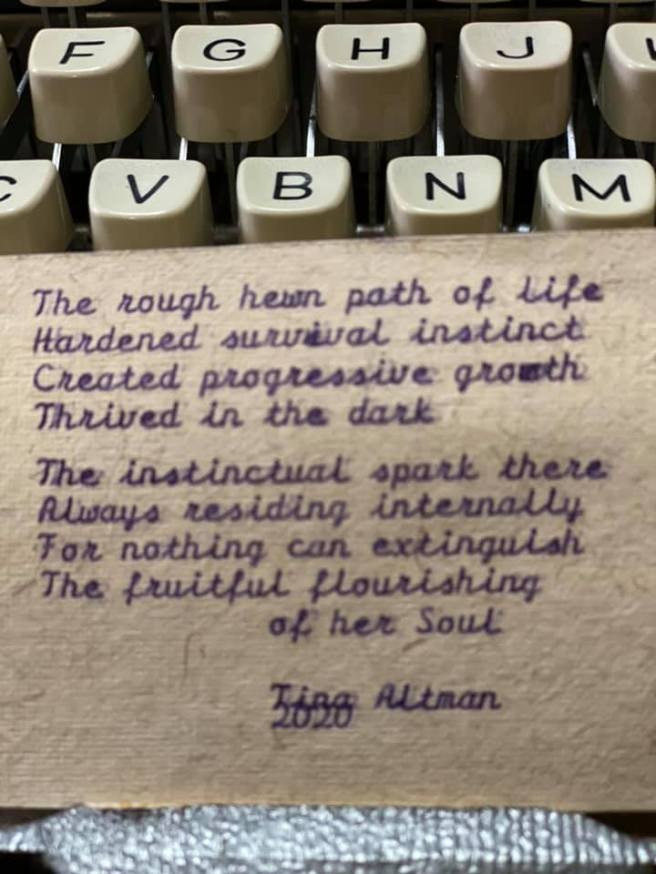 F G H J
C V B N M
The rough hewn path of life
Hardened survival instinct
Created progressive growth
Thrived in the dark
The instinctual spark there
Always residing internally
For nothing can extinguish
The fruitful flourishing
of her Soul
Tina Altman
2020